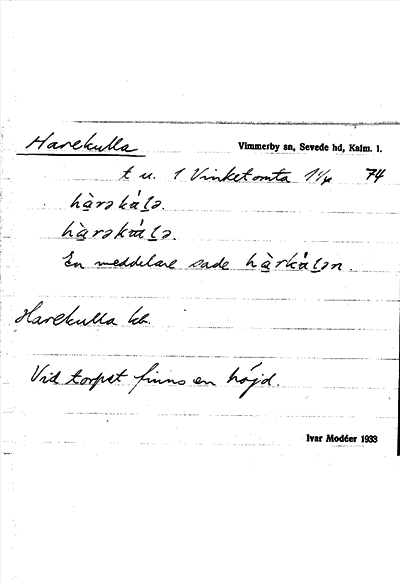 Harekulla
Vimmerby sn, Sevede hd, Kalm. l.
t u. 1 Vinketomta 74
hàrəkål̠ə.
hàrəkål̠ə.
En meddelare sade hàrkål̠ən.
Harekulla kb.
Vid torpet finns en höjd.
Ivar Modéer 1933